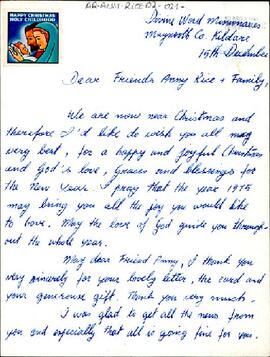 HAPPY CHRISTMAS
HOLY CHILDHOOD
Divine Word Missionaries
Maynooth Co. Kildare
15th December
Dear Friends Anny Rice + Family,
We are now near Christmas and
therefore I'd like do wish you all my
very best, for a happy and joyful Christmas
and God's love, Graces and blessings for
the New Year. I pray that the year 1975
may bring you all the joy you would like
to have. May the love of God guide you through-
out the whole year.
May dear Friend Anny, I thank you
very sincerely for your lovely letter, the card and
your generouse gift. Thank you very much.
I was glad to get all the news from
you and especially that all is going fine for you.